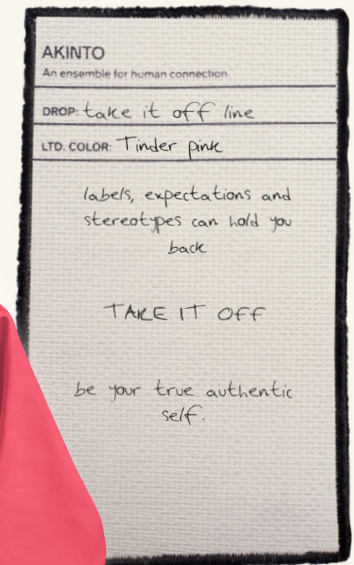 AKINTO
An ensemble for human connection.
DROP: take it off line
LTD. COLOR: Tinder pink
labels, expectations and
stereotypes can hold you
back
TAKE IT OFF
be your true authentic
self.